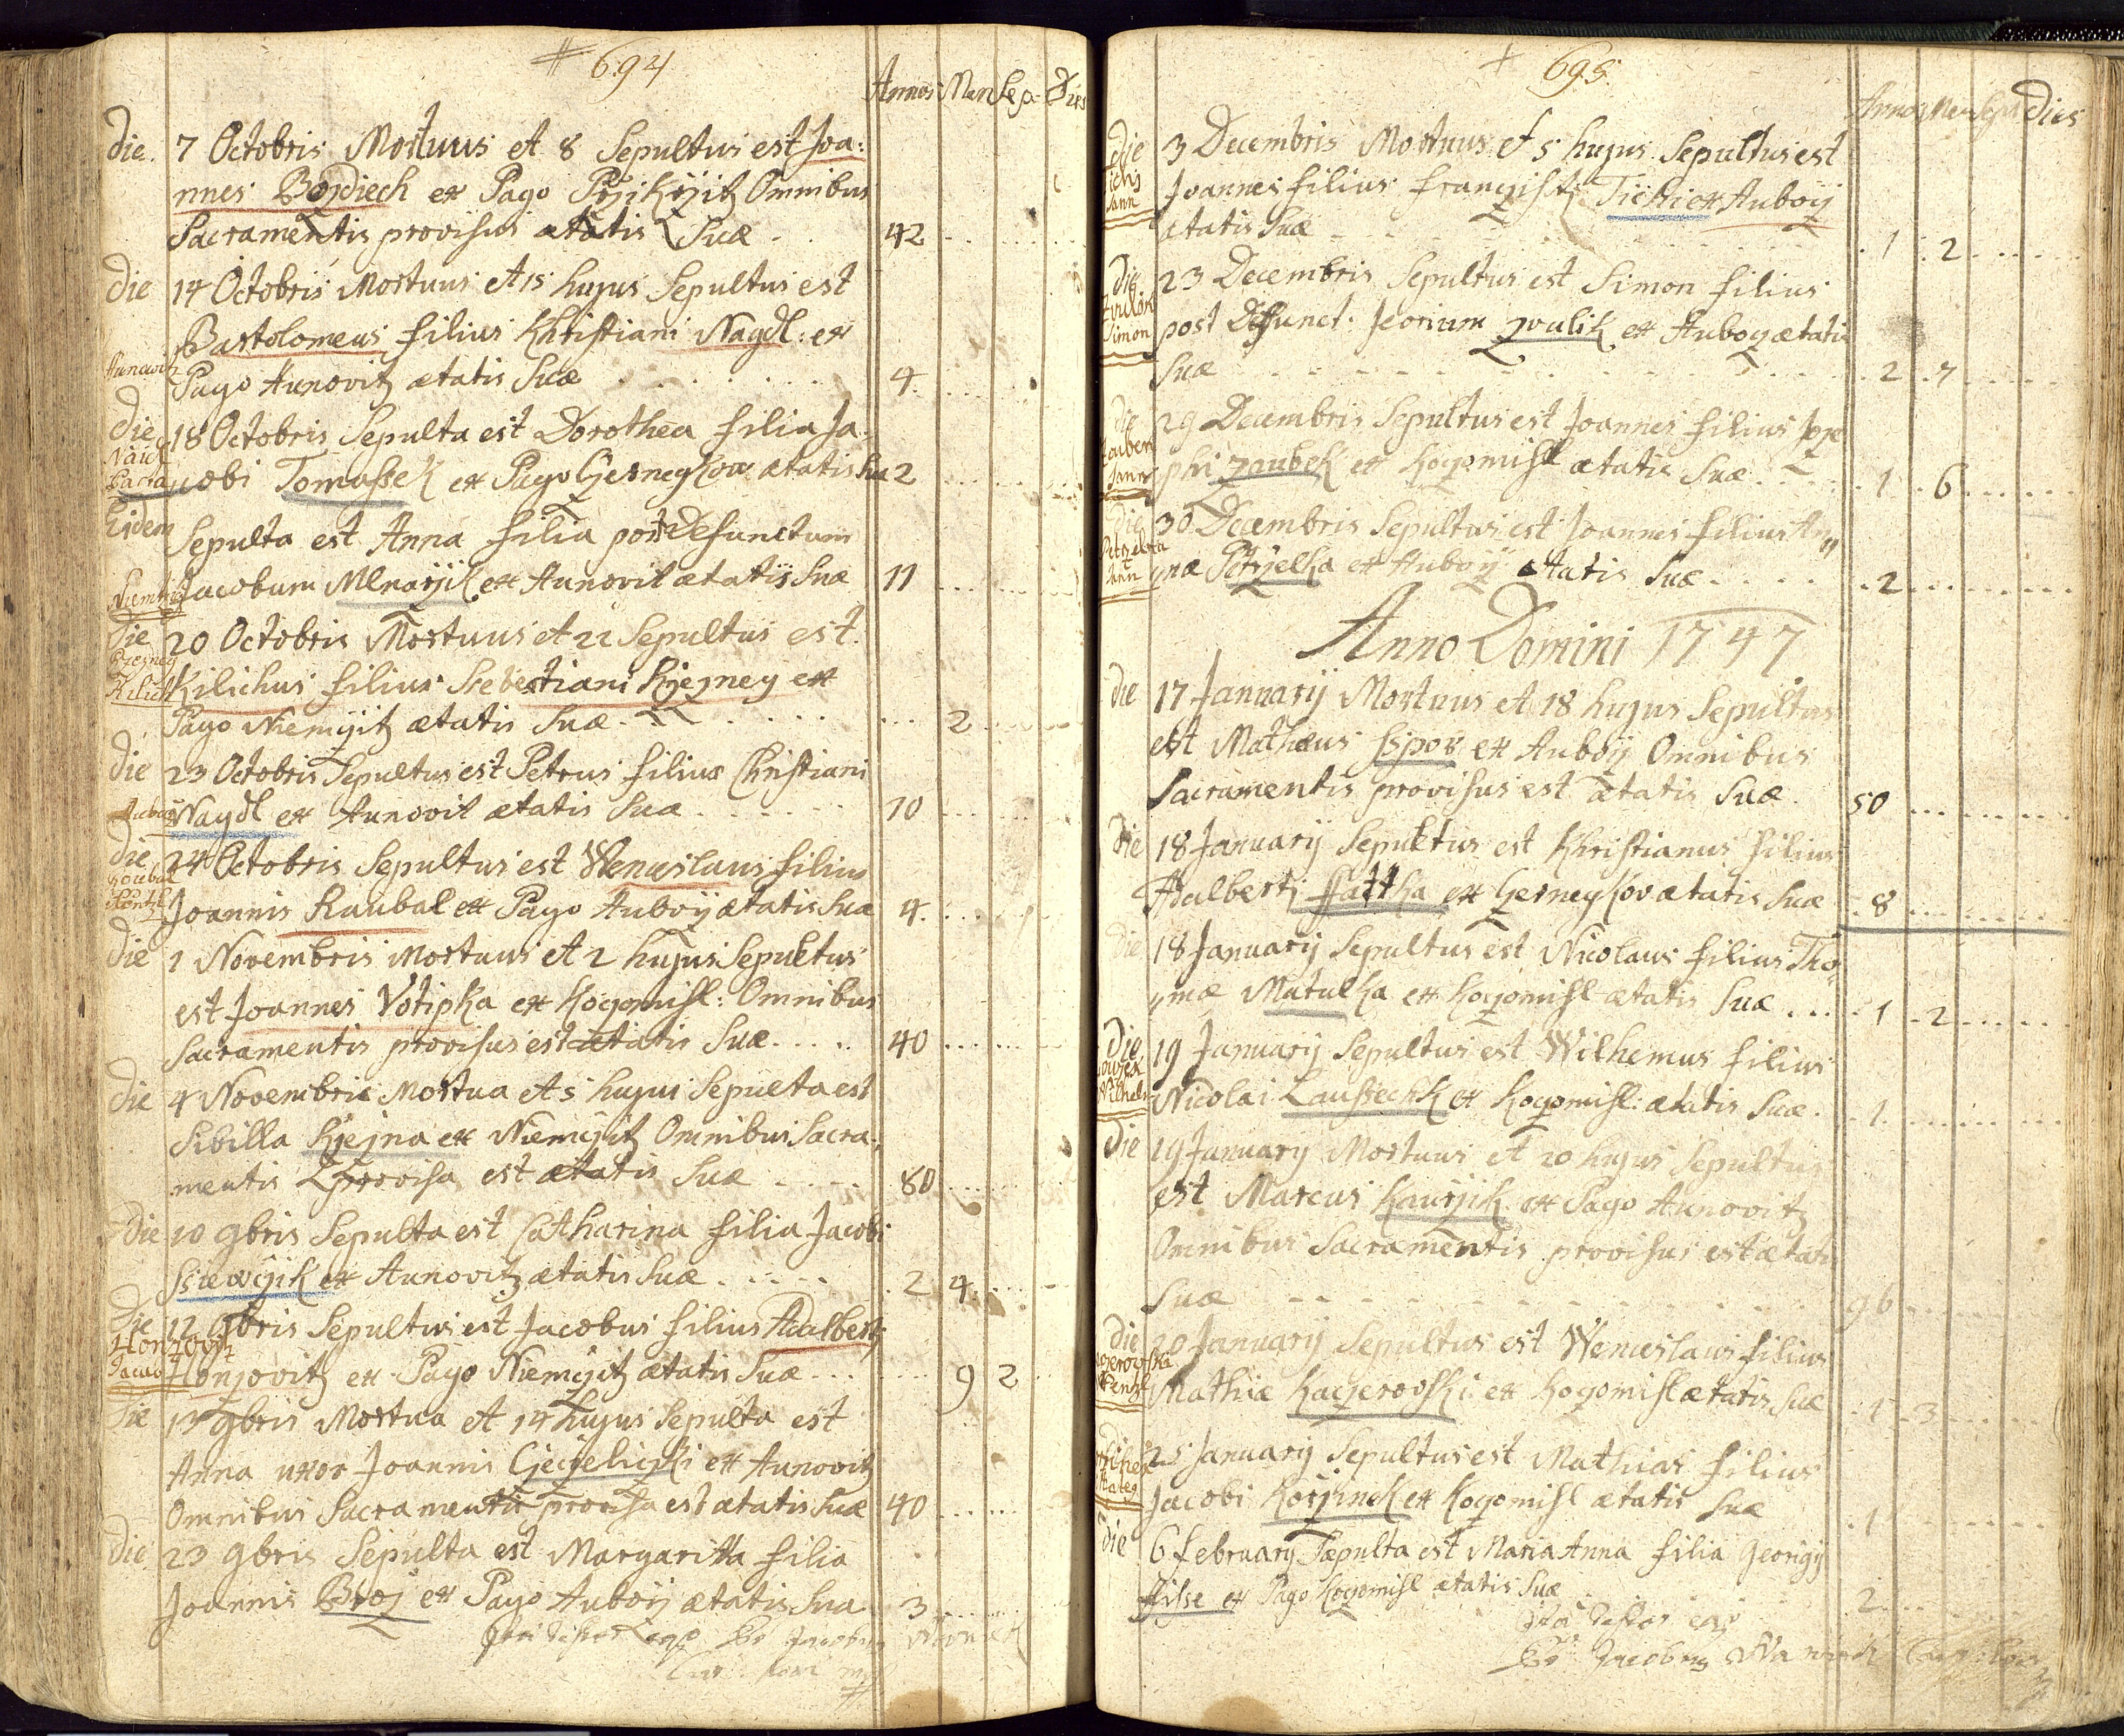 694
Annos Men Sep: Dies
die. 7 Octobris Mortuus et 8 Sepultus est Joa:
nnes Bojdiech ex Pago Omnibus
Sacramentis provisus ætatis Suæ 42
die 14 Octobris Mortuus et 15 hujus Sepultus est
Bartolomeus filius Khristiani Naydl: ex
Pago Aunovitz ætatis Suæ 4
die 18 Octobris Sepulta est Dorothea filia Ja-
cobi Tomassek ex Pago ætatis Suæ 2
Eidem Sepulta est Anna filia post Defunctum
Jacobum Mlnarjik ex Aunovit ætatis Suæ 11
die 20 Octobris Mortuus et 22 Sepultus est
Kilichus filius Sebestiani Kjejney ex
Pago Niemcjitz ætatis Suæ 2
die 23 Octobris Sepultus est Petrus filius Christiani
Naydl ex Aunovit ætatis Suæ 10
die 24 Octobris Sepultus est Wenceslaus filius
Joannis Raubal ex Pago Auboij ætatis Suæ 4.
die 1 Novembris Mortuus et 2 hujus Sepultus
est Joannes Votipka ex Kogomisl: Omnibus
Sacramentis provisus est ætatis Suæ 40
die 4 Novembris Mortua et 5 hujus Sepulta est
Sibilla Kjejna ex Niemcjitz Omnibus Sacra-
mentis provisa est ætatis Suæ 80
die 10 9bris Sepulta est Catharina filia Jacobi
ex Aunovitz ætatis Suæ 2 4
die 12 9bris Sepultus est Jacobus filius Adalberti
Honzovitz
Honjovitz ex Pago Niemcjitz ætatis Suæ 9 2
die 13 9bris Mortua et 14 hujus Sepulta est
Anna uxor Joannis ex Aunovitz
Omnibus Sacramentis provisa est ætatis Suæ 40
die 23 9bris Sepulta est Margaritta filia
Joannis Broj ex Pago Auboij ætatis Sua 3
695
Annos Men Sept dies
die 3 Decembris Mortuus et 5 hujus Sepultus est
Joannes filius Tichi ex Auboij
ætatis Suæ 1 2
die 23 Decembris Sepultus est Simon filius
Simon
post Defunct: zoulik ex Auboy ætatis
Suæ 2 7
die 29 Decembris Sepultus est Joannes filius Joze
phi zaubek ex Kogomisl ætatis Suæ 1 6
die 30 Decembris Sepultus est Joannes filius
Petrjelka ex Auboij ætatis Suæ 2
Anno Domini 1747
die 17 Januarij Mortuus et 18 hujus Sepultus
est Mathæus ex Auboij Omnibus
Sacramentis provisus est ætatis Suæ 50
die 18 January Sepultus est Khristianus filius
Adalberti ex ætatis Suæ 8
die 18 January Sepultus est Nicolaus filius Tho
mæ Matulka ex Kogomisl ætatis Suæ 1 2
die 19 January Sepultus est Wilhemus filius
Nicolai ex Kogomisl: ætatis Suæ 1
die 19 January Mortuus et 20 hujus Sepultus
est Marcus Kaurjik ex Pago Aunovitz
Omnibus Sacramentis provisus est ætatis
Suæ 96
die 20 January Sepultus est Wenceslaus filius
Mathiæ Kacjerovski ex Kogomisl ætatis Suæ 1 3
25 January Sepultus est Mathias filius
Jacobi Korjinek ex Kogomisl ætatis Suæ 1
die 6 February Sepulta est Maria Anna filia Georgij
ex Pago Kogomisl ætatis Suæ 2
Jacobus